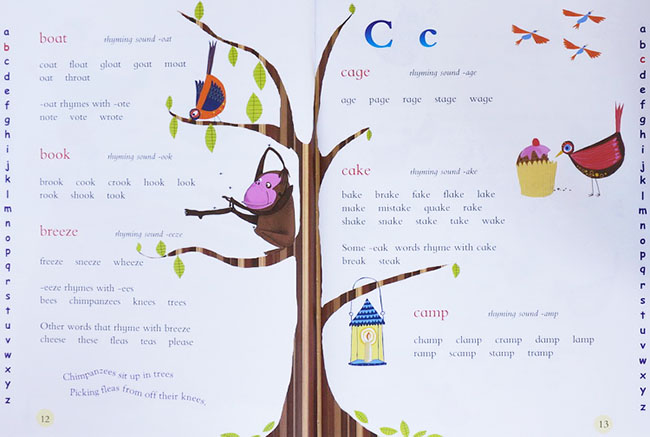 a
b
c
d
e
f
g
h
i
j
k
l
m
n
o
p
q
r
s
t
u
v
w
x
y
z
boat rhyming sound -oat
coat float gloat goat moat
oat throat
-oat rhymes with -ote
note vote wrote
book rhyming sound -ook
brook cook crook hook look
rook shook took
breeze rhyming sound -eeze
freeze sneeze wheeze
-eeze rhymes with -ees
bees chimpanzees knees trees
Other words that rhyme with breeze
cheese these fleas teas please
Chimpanzees sit up in trees
Picking fleas from off their knees.
12
C c
cage rhyming sound -age
age page rage stage wage
cake rhyming sound -ake
bake brake fake flake lake
make mistake quake rake
shake snake stake take wake
Some -eak words rhyme with cake
break steak
camp rhyming sound -amp
champ clamp cramp damp lamp
ramp scamp stamp tramp
13
a
b
c
d
e
f
g
h
i
j
k
l
m
n
o
p
q
r
s
t
u
v
w
x
y
z